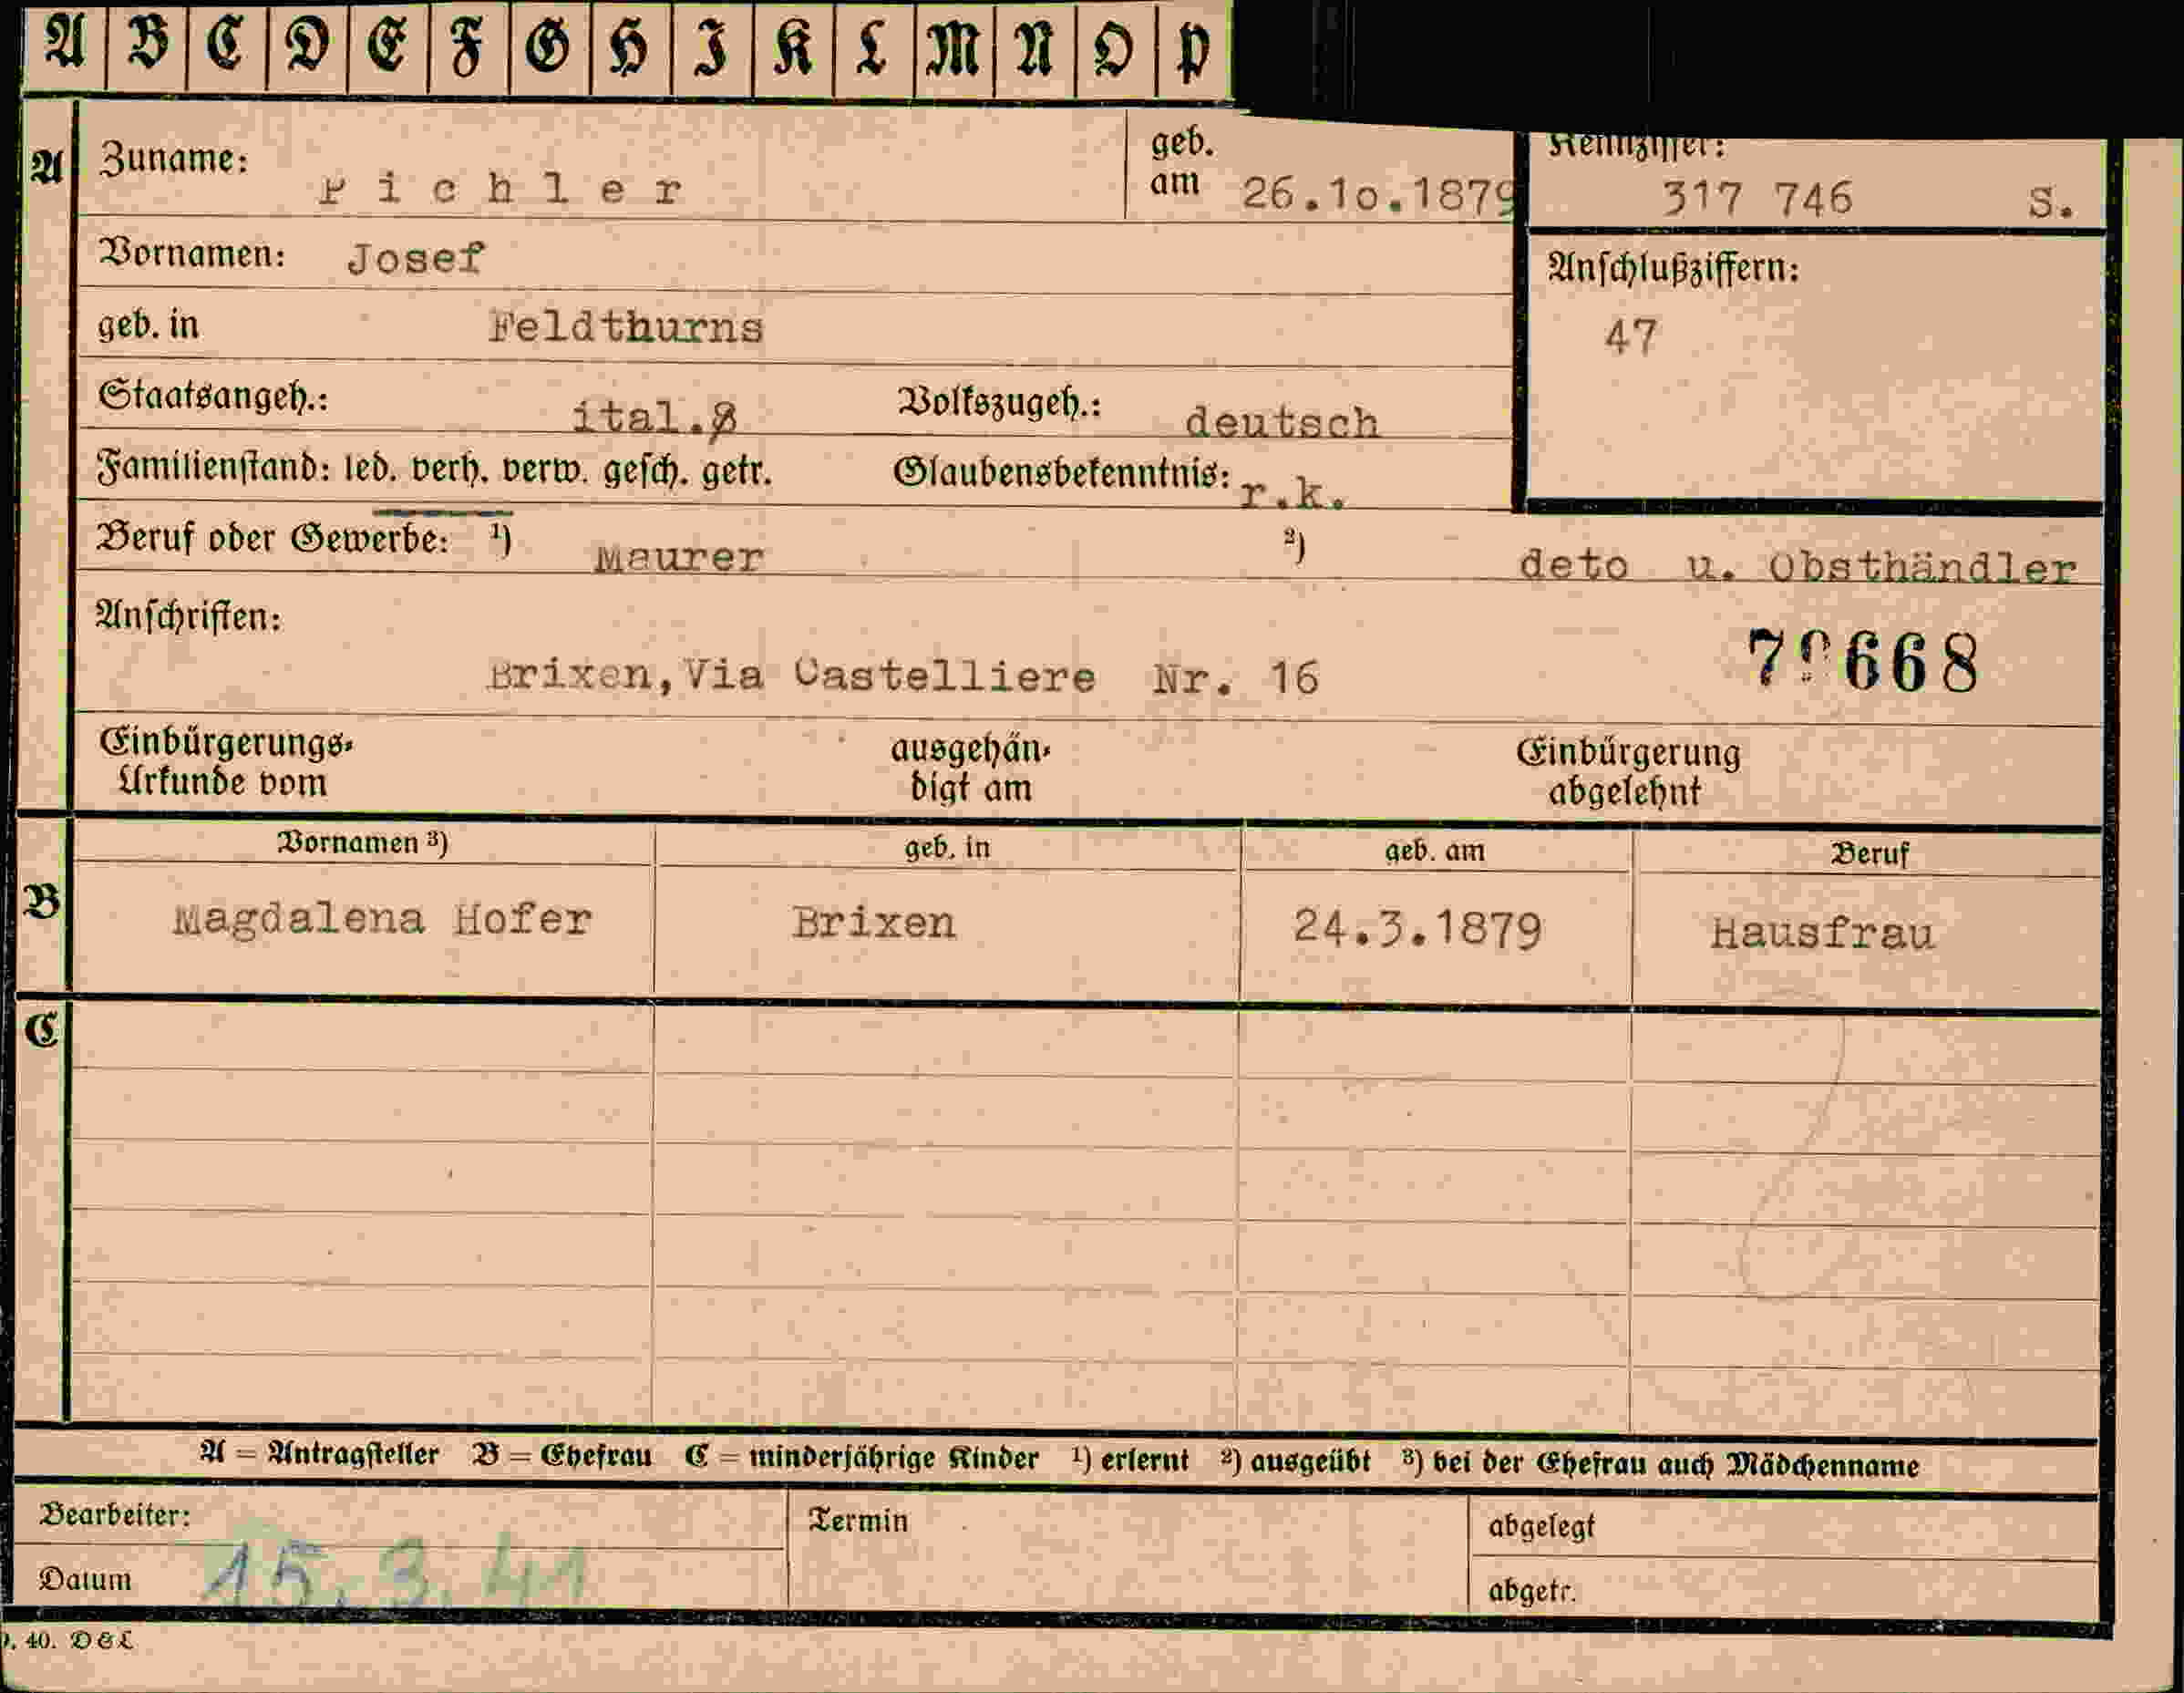 A B C D E F G H I K L M N O P
A Zuname: Pichler geb. am 26.10.1879 Kennziffer: 317 746 S.
Vornamen: Josef Anschlußziffern:
geb. in Feldthurns 47
Staatsangeh.: ital. Volkszugeh.: deutsch
Familienstand: led. verh. verw. gesch. getr. Glaubensbekenntnis: r.k.
Beruf oder Gewerbe: ¹) Maurer ²) deto u. Obsthändler
Anschriften:
Brixen, Via Castelliere Nr. 16
Einbürgerungs-Urkunde vom ausgehändigt am Einbürgerung abgelehnt
Vornamen ³) geb. in geb. am Beruf
B Magdalena Hofer Brixen 24.3.1879 Hausfrau
C
A = Antragsteller B = Ehefrau C = minderjährige Kinder ¹) erlernt ²) ausgeübt ³) bei der Ehefrau auch Mädchenname
Bearbeiter: Termin abgelegt
Datum 15.3.41 abgetr.
40. D & L